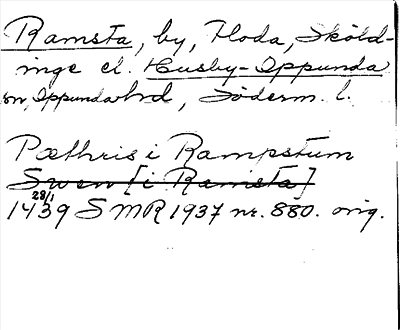 Ramsta, by, Floda, Sköld-
inge el. Husby-Oppunda
sn, Oppunda hd, Söderm. l.
Pæthris i Rampstum
Swen [i Ramsta]
28/1
1439 SMR 1937 nr. 880. orig.